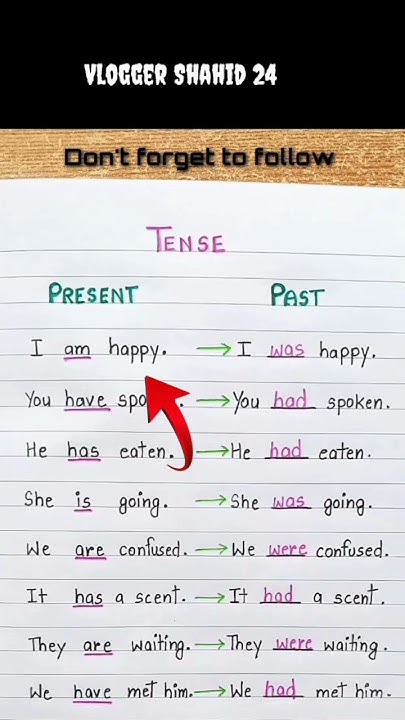 VLOGGER SHAHID 24
Don't forget to follow
TENSE
PRESENT PAST
I am happy. → I was happy.
You have → You had spoken.
He has eaten. → He had eaten.
She is going. → She was going.
We are confused. → We were confused.
It has a scent. → It had a scent.
They are waiting. → They were waiting.
We have met him. → We had met him.